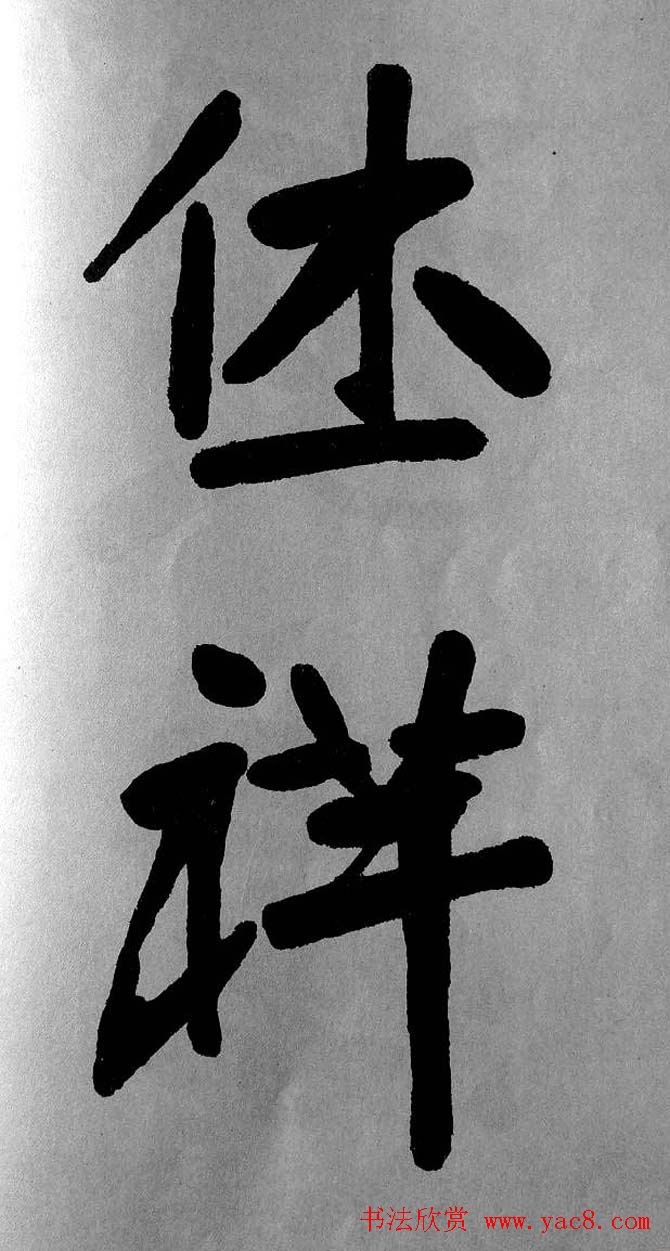 休
祥
书法欣赏 www.yac8.com